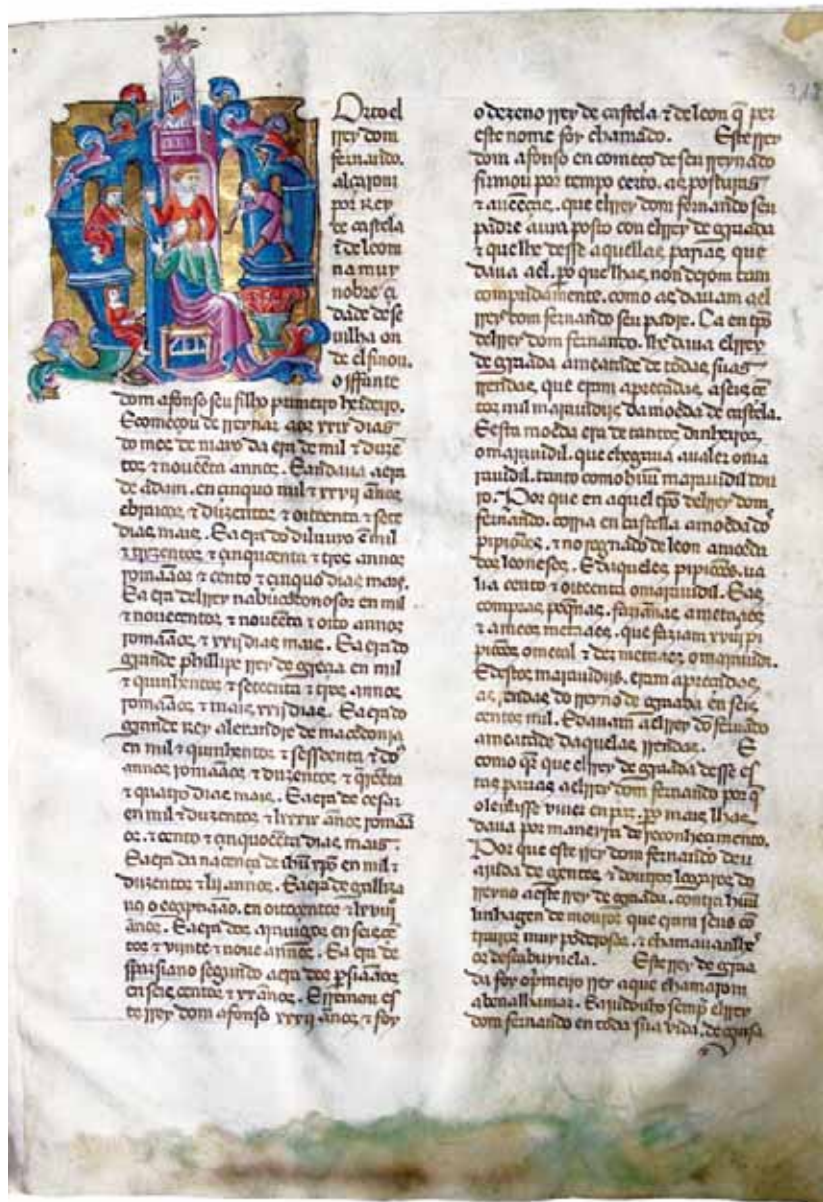 Orto el
rrey dom
fernando.
alçarom
por Rey
de castela
⁊ de leom
na muy
nobre çi
dade de se
uilha on
de el finou.
o iffante
dom afonso seu filho primeiro herdeiro.
E começou de rreynar aos xxix dias
do mes de mayo da era de mil ⁊ duzẽ
tos ⁊ nouẽeta annos. E andaua a era
de adam. en çinquo mil ⁊ xxvij ãnos
ebraicos ⁊ duzentos ⁊ oiteenta ⁊ sete
dias mais. E a era do diluuio ẽ mil
⁊ çinquoenta ⁊ tres annos
romãaos ⁊ cento ⁊ çinquo dias mais.
E a era delrrey nabucodonosor en mil
⁊ nouecentos ⁊ nouẽeta ⁊ oito annos
romãaos. ⁊ xxij dias mais. E a era do
grande phillipe rrey de greçia en mil
⁊ quinhentos ⁊ seteenta ⁊ tres annos
romãaos ⁊ mais xxij dias. E a era do
grande Rey alexandre de maçedonia
en mil ⁊ quinhentos ⁊ sesseenta ⁊ doˢ
annos romãaos ⁊ duzentos ⁊ qrẽeta
⁊ quatro dias mais. E a era de cesar
en mil ⁊ duzentos ⁊ lxxxix annos romãa
os. ⁊ cento ⁊ çinquoẽeta dias mais
E a era da naçença de ihũ xpõ en mil ⁊
duzentos ⁊ lij annos. E a era de galliza
no o egepçiaão. en oitoçentos ⁊ lxviijº
ãnos. E a era dos arauigos en seisçẽ
tos ⁊ vinte ⁊ noue annos. E a era de
sparsiano segundo a era dos persiãaos
en seis centos ⁊ xx ãnos. E rreinou es
te rrey dom afonso xxxij. ãnos ⁊ foy
o dezeno rrey de castela ⁊ de leon q̃ per
este nome foy chamado. Este rrey
dom afonso en começo de seu rreynado
firmou por tempo certo. as posturas
⁊ aueẽças. que elrrey dom fernando seu
padre auia posto con elrrey de graada
⁊ que lhe desse aquellas parias que
daua a el. pero que lhas non derom tam
compridamente. como as dauam a el
rrey dom fernando seu padre. Ca en tpõ
delrrey dom fernando. lhe daua elrrey
de graada a meatade de todas suas
rrendas. que eram apreçadas a seis çẽ
tos mil marauidijs da moeda de castela.
E esta moeda era de tantos dinheiros
o marauidil. que chegaua a ualer o ma
rauidil. tanto como hũu marauidil dou
ro. Por que en aquel tpõ delrrey dom
fernando. corria en castella a moeda dos
pipiões. ⁊ no regnado de leon a moeda
dos leoneses. E daqueles pipiões. ua
lia cento ⁊ oiteenta o marauidil. E as
compras peq̃nas. faziãnas a metaaes
⁊ a meos metaaes. que faziam xviij pi
piões o metal ⁊ dez metaaes o marauidi.
E destes marauidijs. eram apreçadas
as rendas do rreyno de graada en seis
centos mil. E dauam a elrrey dõ fernãdo
a meatade daquelas rrendas. E
como q̃r que elrrey de graada desse es
tas parias a elrrey dom fernando por q̃
o leixasse viuer en paz. pero mais lhas
daua por maneyra de reconheçimento.
Por que este rrey dom fernando deu
ajuda de gentes ⁊ doutros logares do
reyno a este rrey de graada. contra hũu
linhagen de mouros que eram seus cõ
trairos muy poderosos. ⁊ chamauanlhe
os descaburuela. Este rrey de graa
da foy o primeiro rrey a que chamarom
abenalhamar. E aiudouho semp̃ elrrey
dom fernando en toda sua vida. de guisa